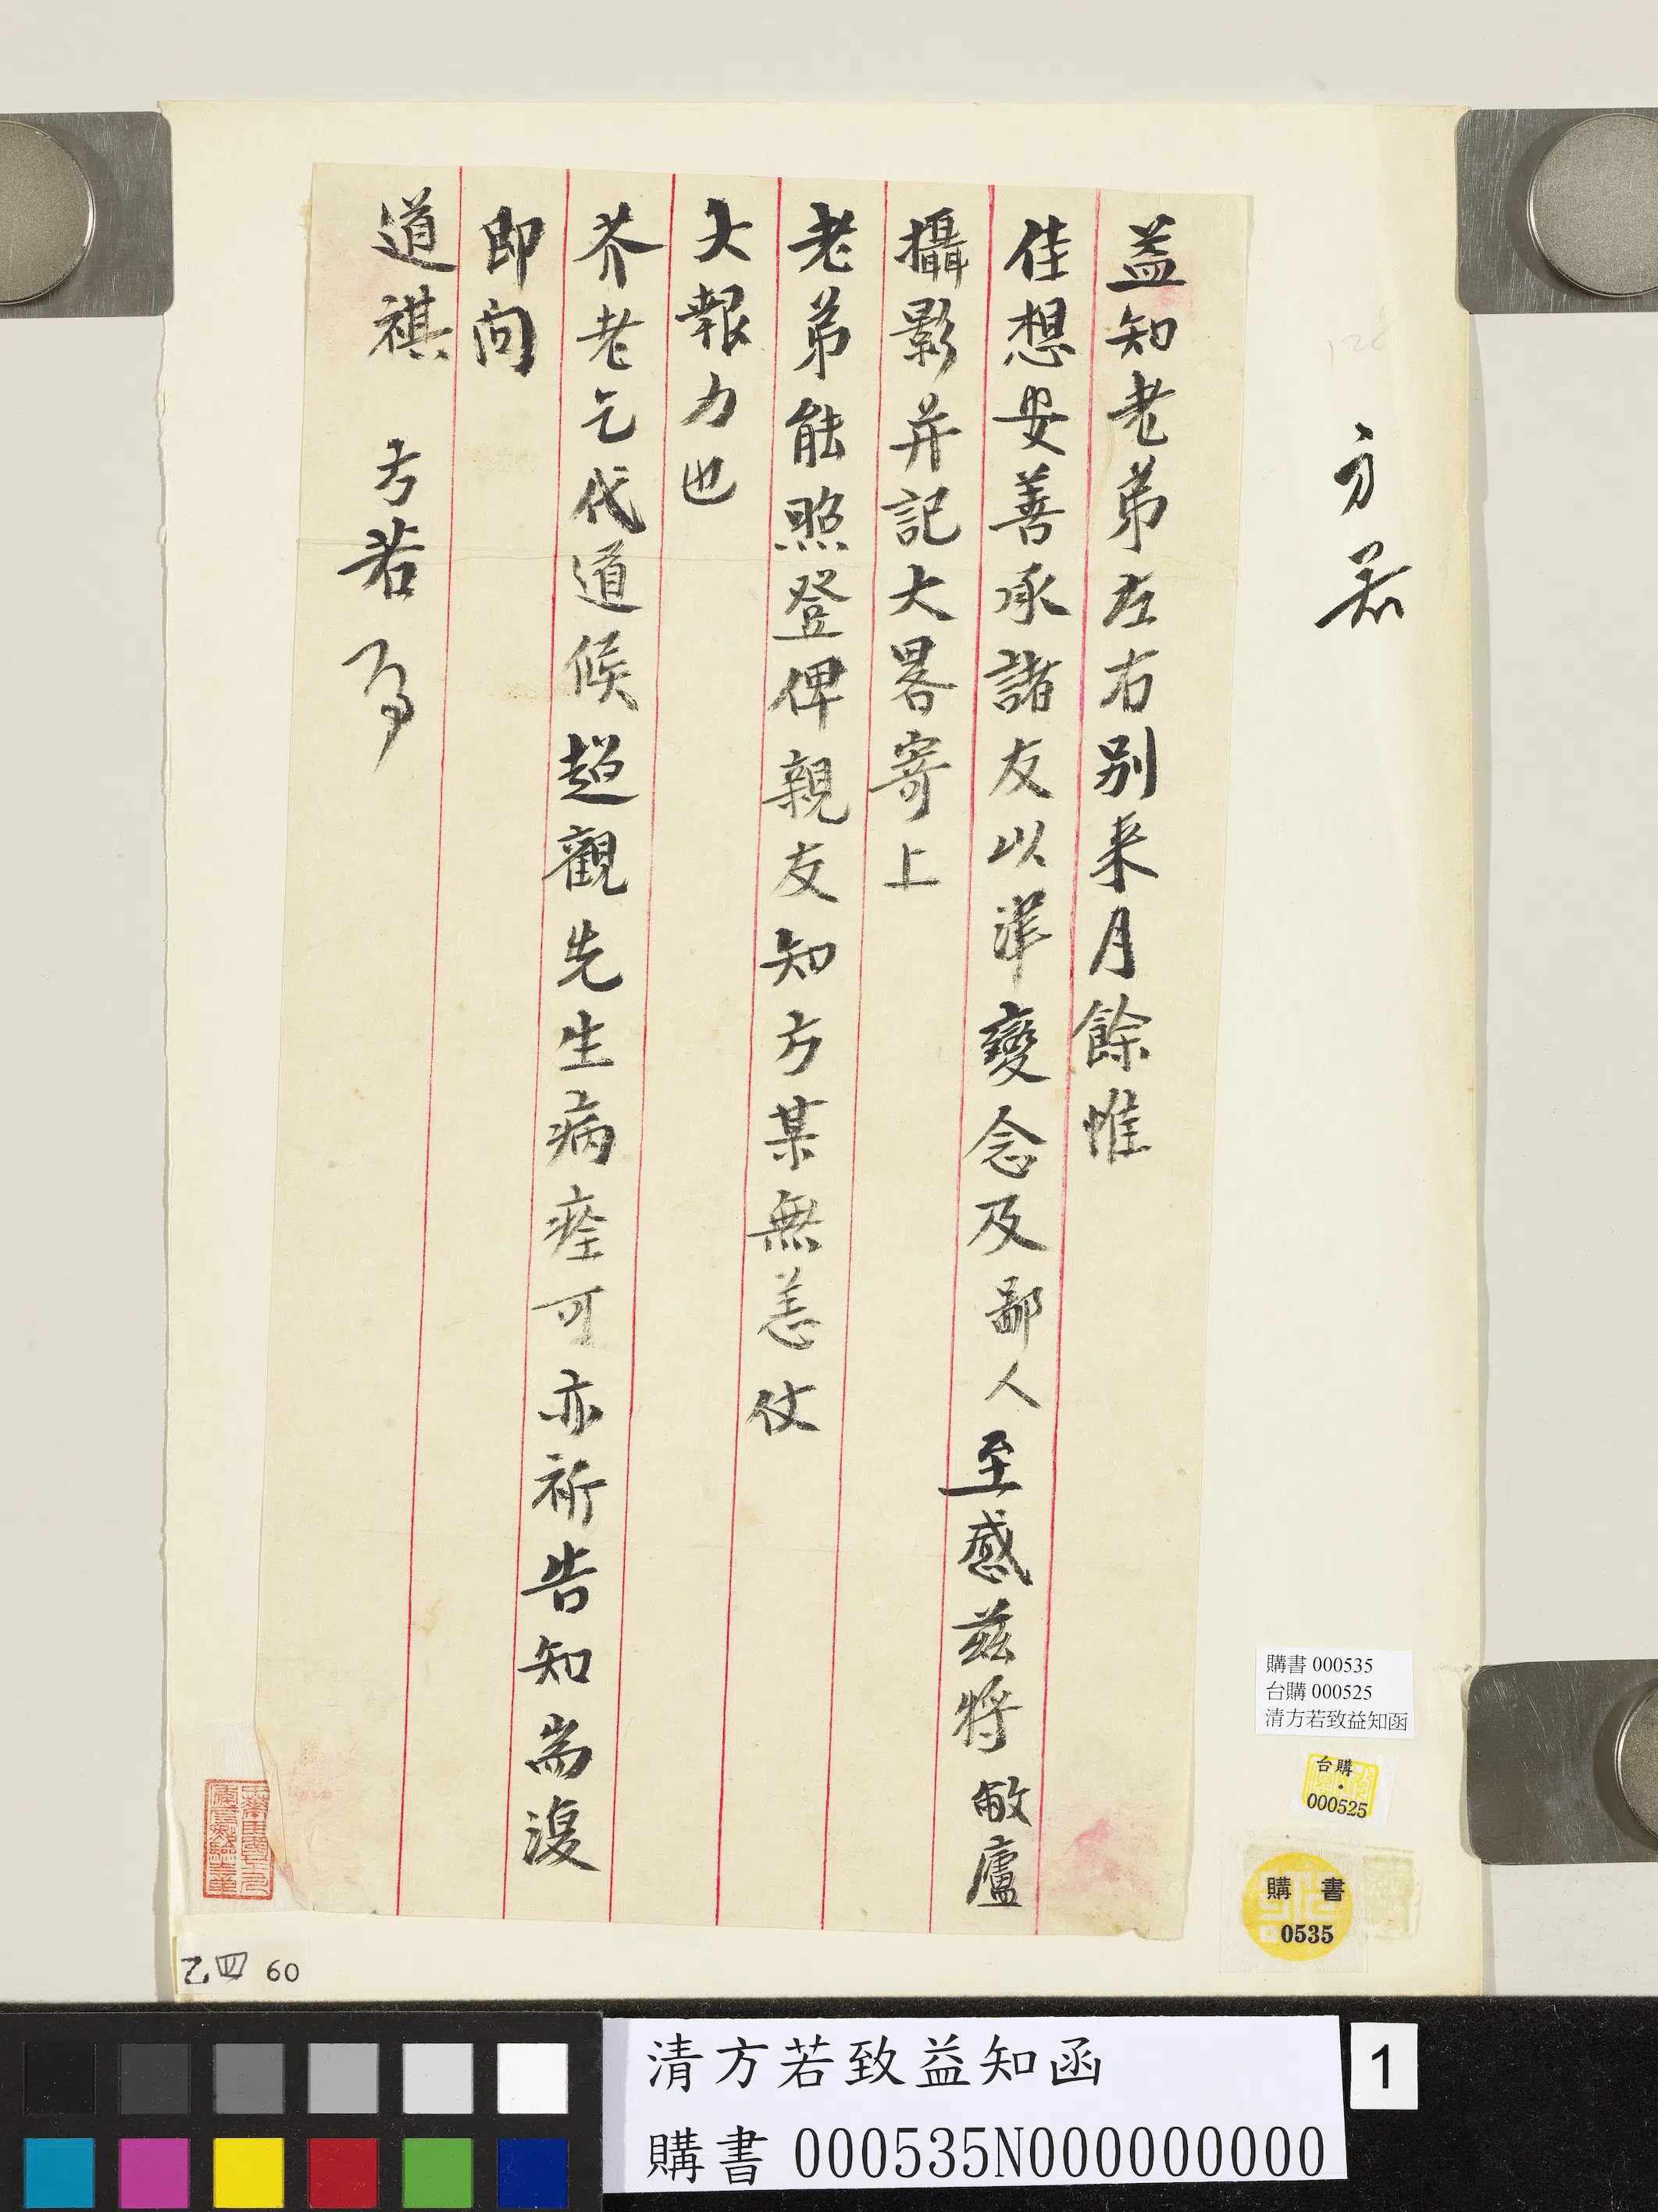 方若
益知老弟左右別来月餘惟
佳想安善承諸友以準變念及鄙人至感茲將敝廬
攝影并記大畧寄上
老弟能照登俾親友知方某無恙仗
大報力也
芥老乞代道候超觀先生病痊可亦祈告知耑復
即問
道祺 方若
購書 000535
台購 000525
清方若致益知函
台購
000525
購書
0535
乙四 60
清方若致益知函
購書 000535N000000000
1